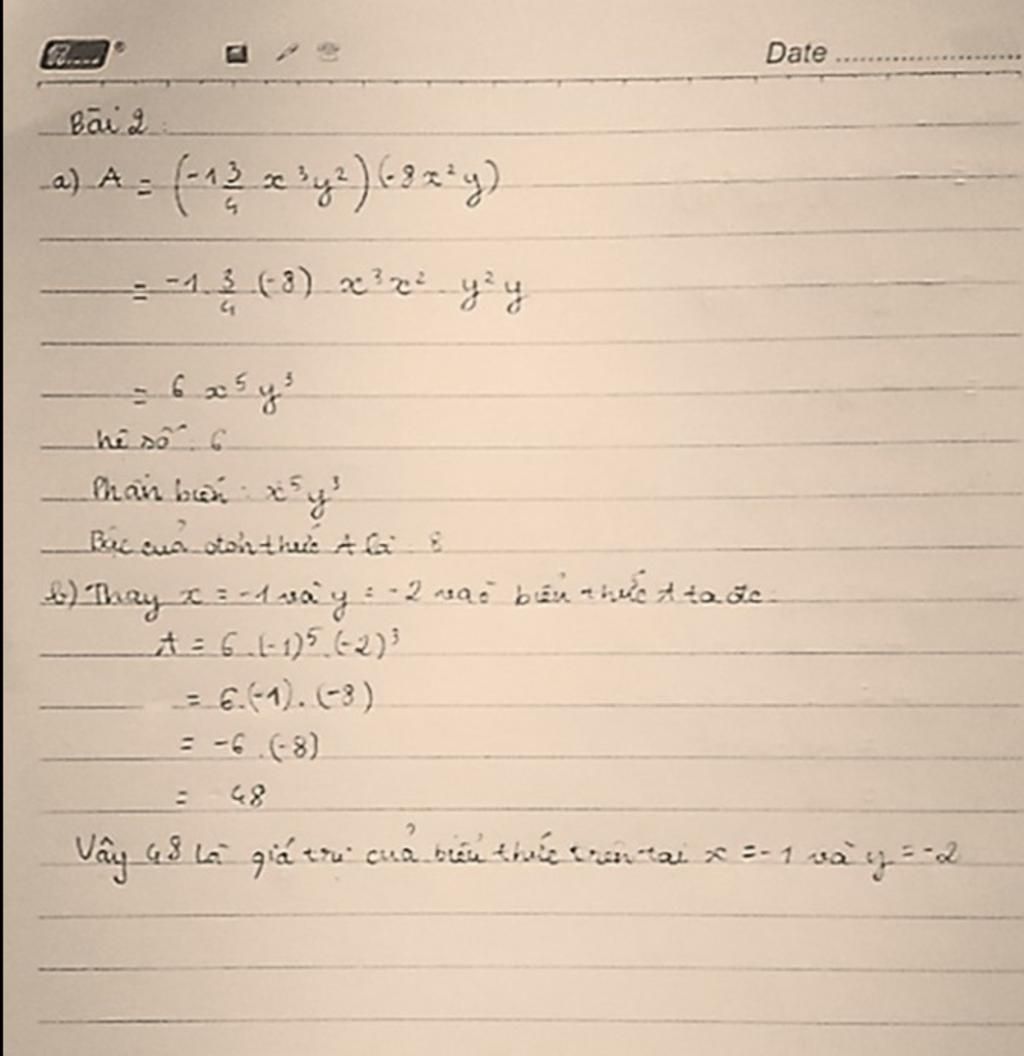 Date
Bài 2:
a) A = (-1 3/4 x³y²)(-8x²y)
= -1 . 3/4 (-8) x³x² . y²y
= 6 x⁵y³
hệ số : 6
Phần biến : x⁵y³
Bậc của đơn thức A là : 8
b) Thay x = -1 và y = -2 vào biểu thức A ta đc:
A = 6 . (-1)⁵ . (-2)³
= 6.(-1) . (-8)
= -6 . (-8)
= 48
Vậy 48 là giá trị của biểu thức trên tại x = -1 và y = -2